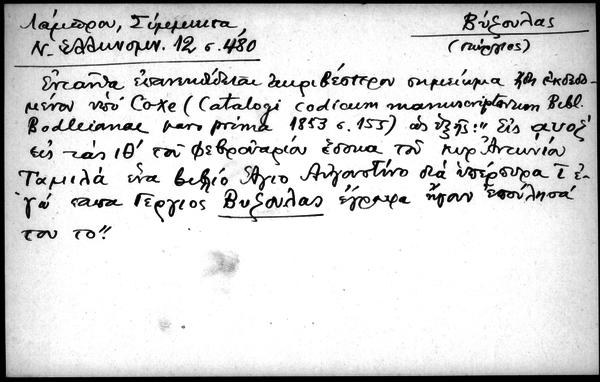 Λάμπρου, Σύμμικτα
Ν. Ελληνομν. 12 σ. 480
Βύξουλας
(Γεώργιος)
Ενταύθα επανεκδίδεται ακριβέστερον σημείωμα ήδη εκδεδο
μένον υπό Coxe (Catalogi codicum manuscriptorum Bibl.
Bodleianae pars prima 1853 σ. 155) ως εξής: "Εις αυοξ
εις τας ιθ' του Φεβρουαρίου έδοκα του κυρ Αντωνίου
Ταμιλά ένα βιβλίο Άγιο Αυγουστίνο διά υπέρπυρα
γώ παπα Γεργιος Βυξουλας έγραψα ήγουν επούλησά
του το".